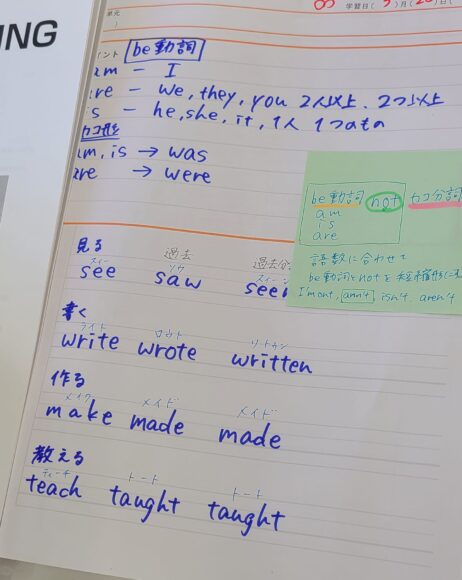 ING
単元
学習日( )月( )日(
イント be動詞
am － I
are － we, they, you 2人以上、2つ以上
is － he, she, it, 1人 1つのもの
カコ形
am, is → was
are → were
be動詞 not カコ分詞
am
is
are
語数に合わせて
be動詞とnotを短縮形に
I'm not, isn't, aren't
見る 過去 過去分
スィー ソウ
see saw seen
書く
ライト ロウト リトゥン
write wrote written
作る
メイク メイド メイド
make made made
教える
ティーチ トート トート
teach taught taught